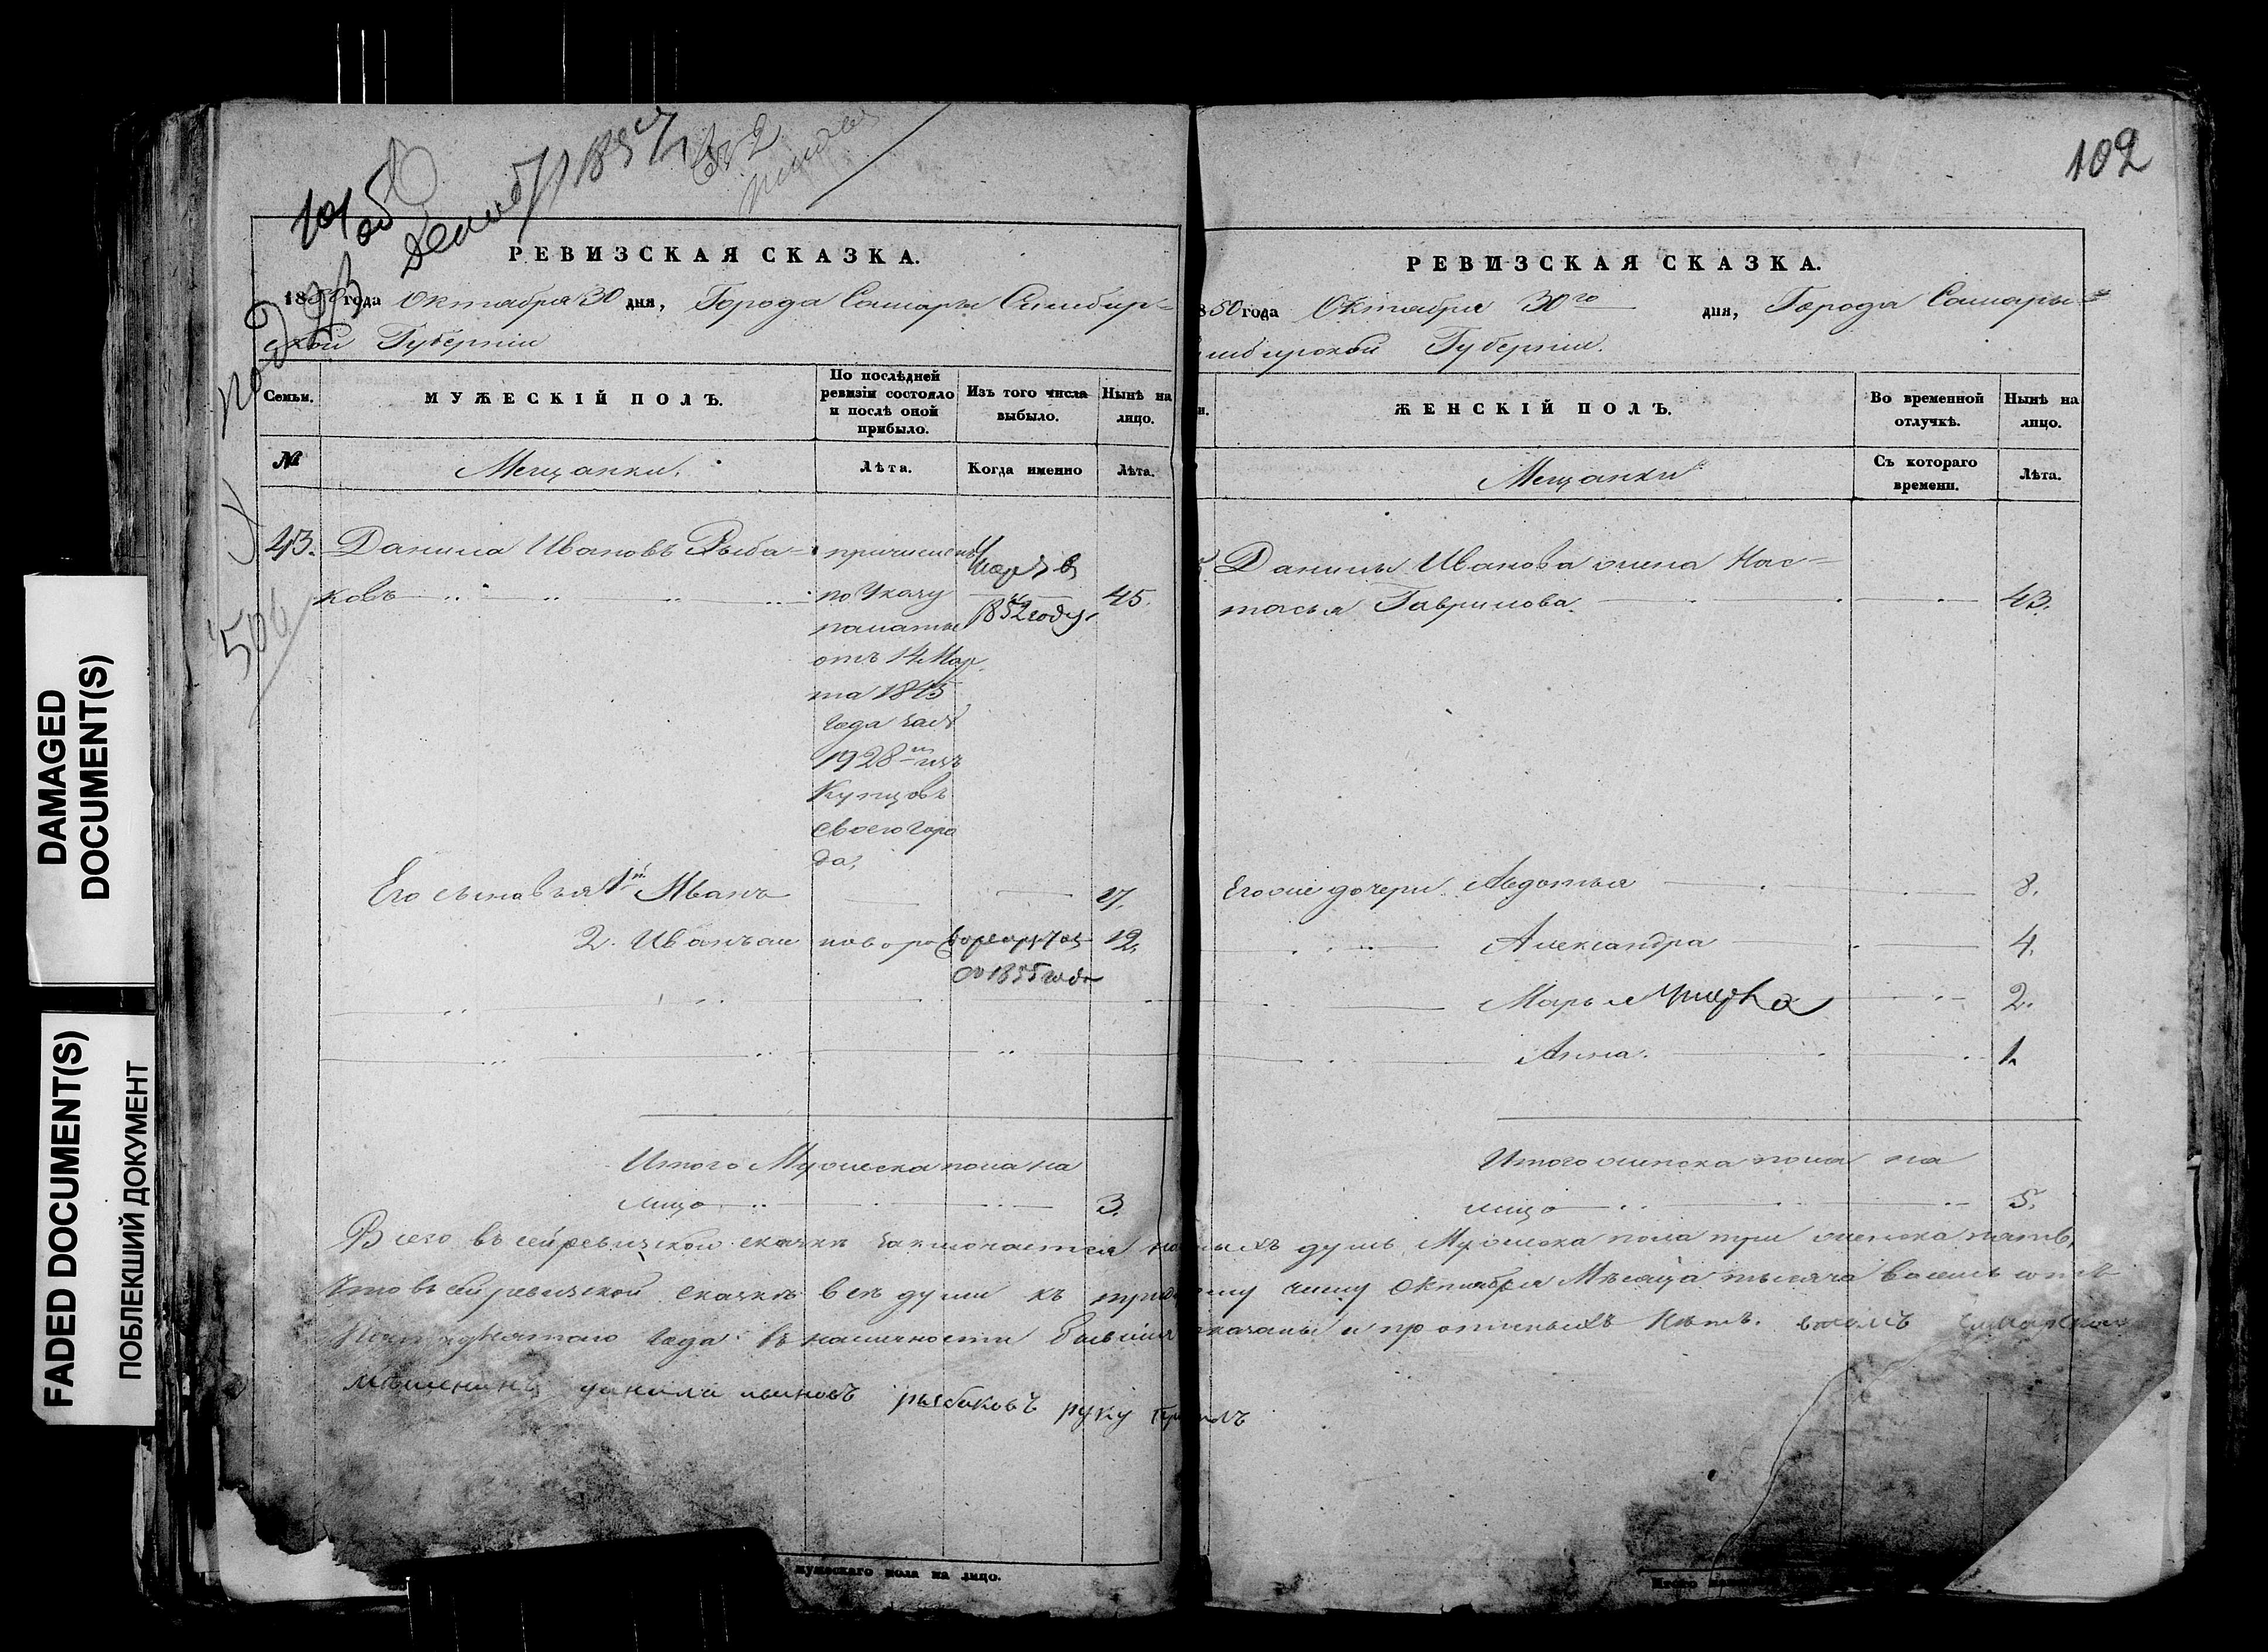 DAMAGED
DOCUMENT(S)
FADED DOCUMENT(S)
ПОБЛЕКШИЙ ДОКУМЕНТ
101 об
РЕВИЗСКАЯ СКАЗКА.
1850 года Октября 30 дня, Города Самары Симбир=
ской Губернии
Семьи.
МУЖЕСКІЙ ПОЛЪ.
По послѣдней
ревизіи состояло
и послѣ оной
прибыло.
Изъ того числа
выбыло.
Нынѣ на
лицо.
№
Мещанки.
Лѣта.
Когда именно
Лѣта.
43. Данила Ивановъ Рыба=
ковъ 45.
причисленъ
по Указу
палаты
отъ 14 Мар
та 1845
года за №
1928 изъ
Купцовъ
своего горо
да,
Умер в
1852 году
Его сыновья 1й Иванъ 17.
2. Иванъ 12.
1855 года
Итого Мужеска пола на
лицо 3.
102
РЕВИЗСКАЯ СКАЗКА.
850 года Октября 30го дня, Города Самары =
имбирской Губернии.
ЖЕНСКІЙ ПОЛЪ.
Во временной
отлучкѣ.
Нынѣ на
лицо.
Мещанки
Съ котораго
времени.
Лѣта.
Данилы Иванова жена Нас=
тасья Гаврилова. 43.
Его же дочери Авдотья 8.
Александра 4.
Марья 2.
Анна. 1.
Итого женска пола на
лицо 5.
Всего въ сей ревизской сказкѣ заключается душъ, Мужеска пола три женска пять,
Что въ сей ревизской сказкѣ всѣ души къ числу Октября Мѣсяца тысяча восемь сотъ
Пятидесятаго года въ наличности бывшія показаны и прописныхъ нѣтъ.
данила ивановъ рыбаковъ руку
мужескаго пола на лицо.
Итого